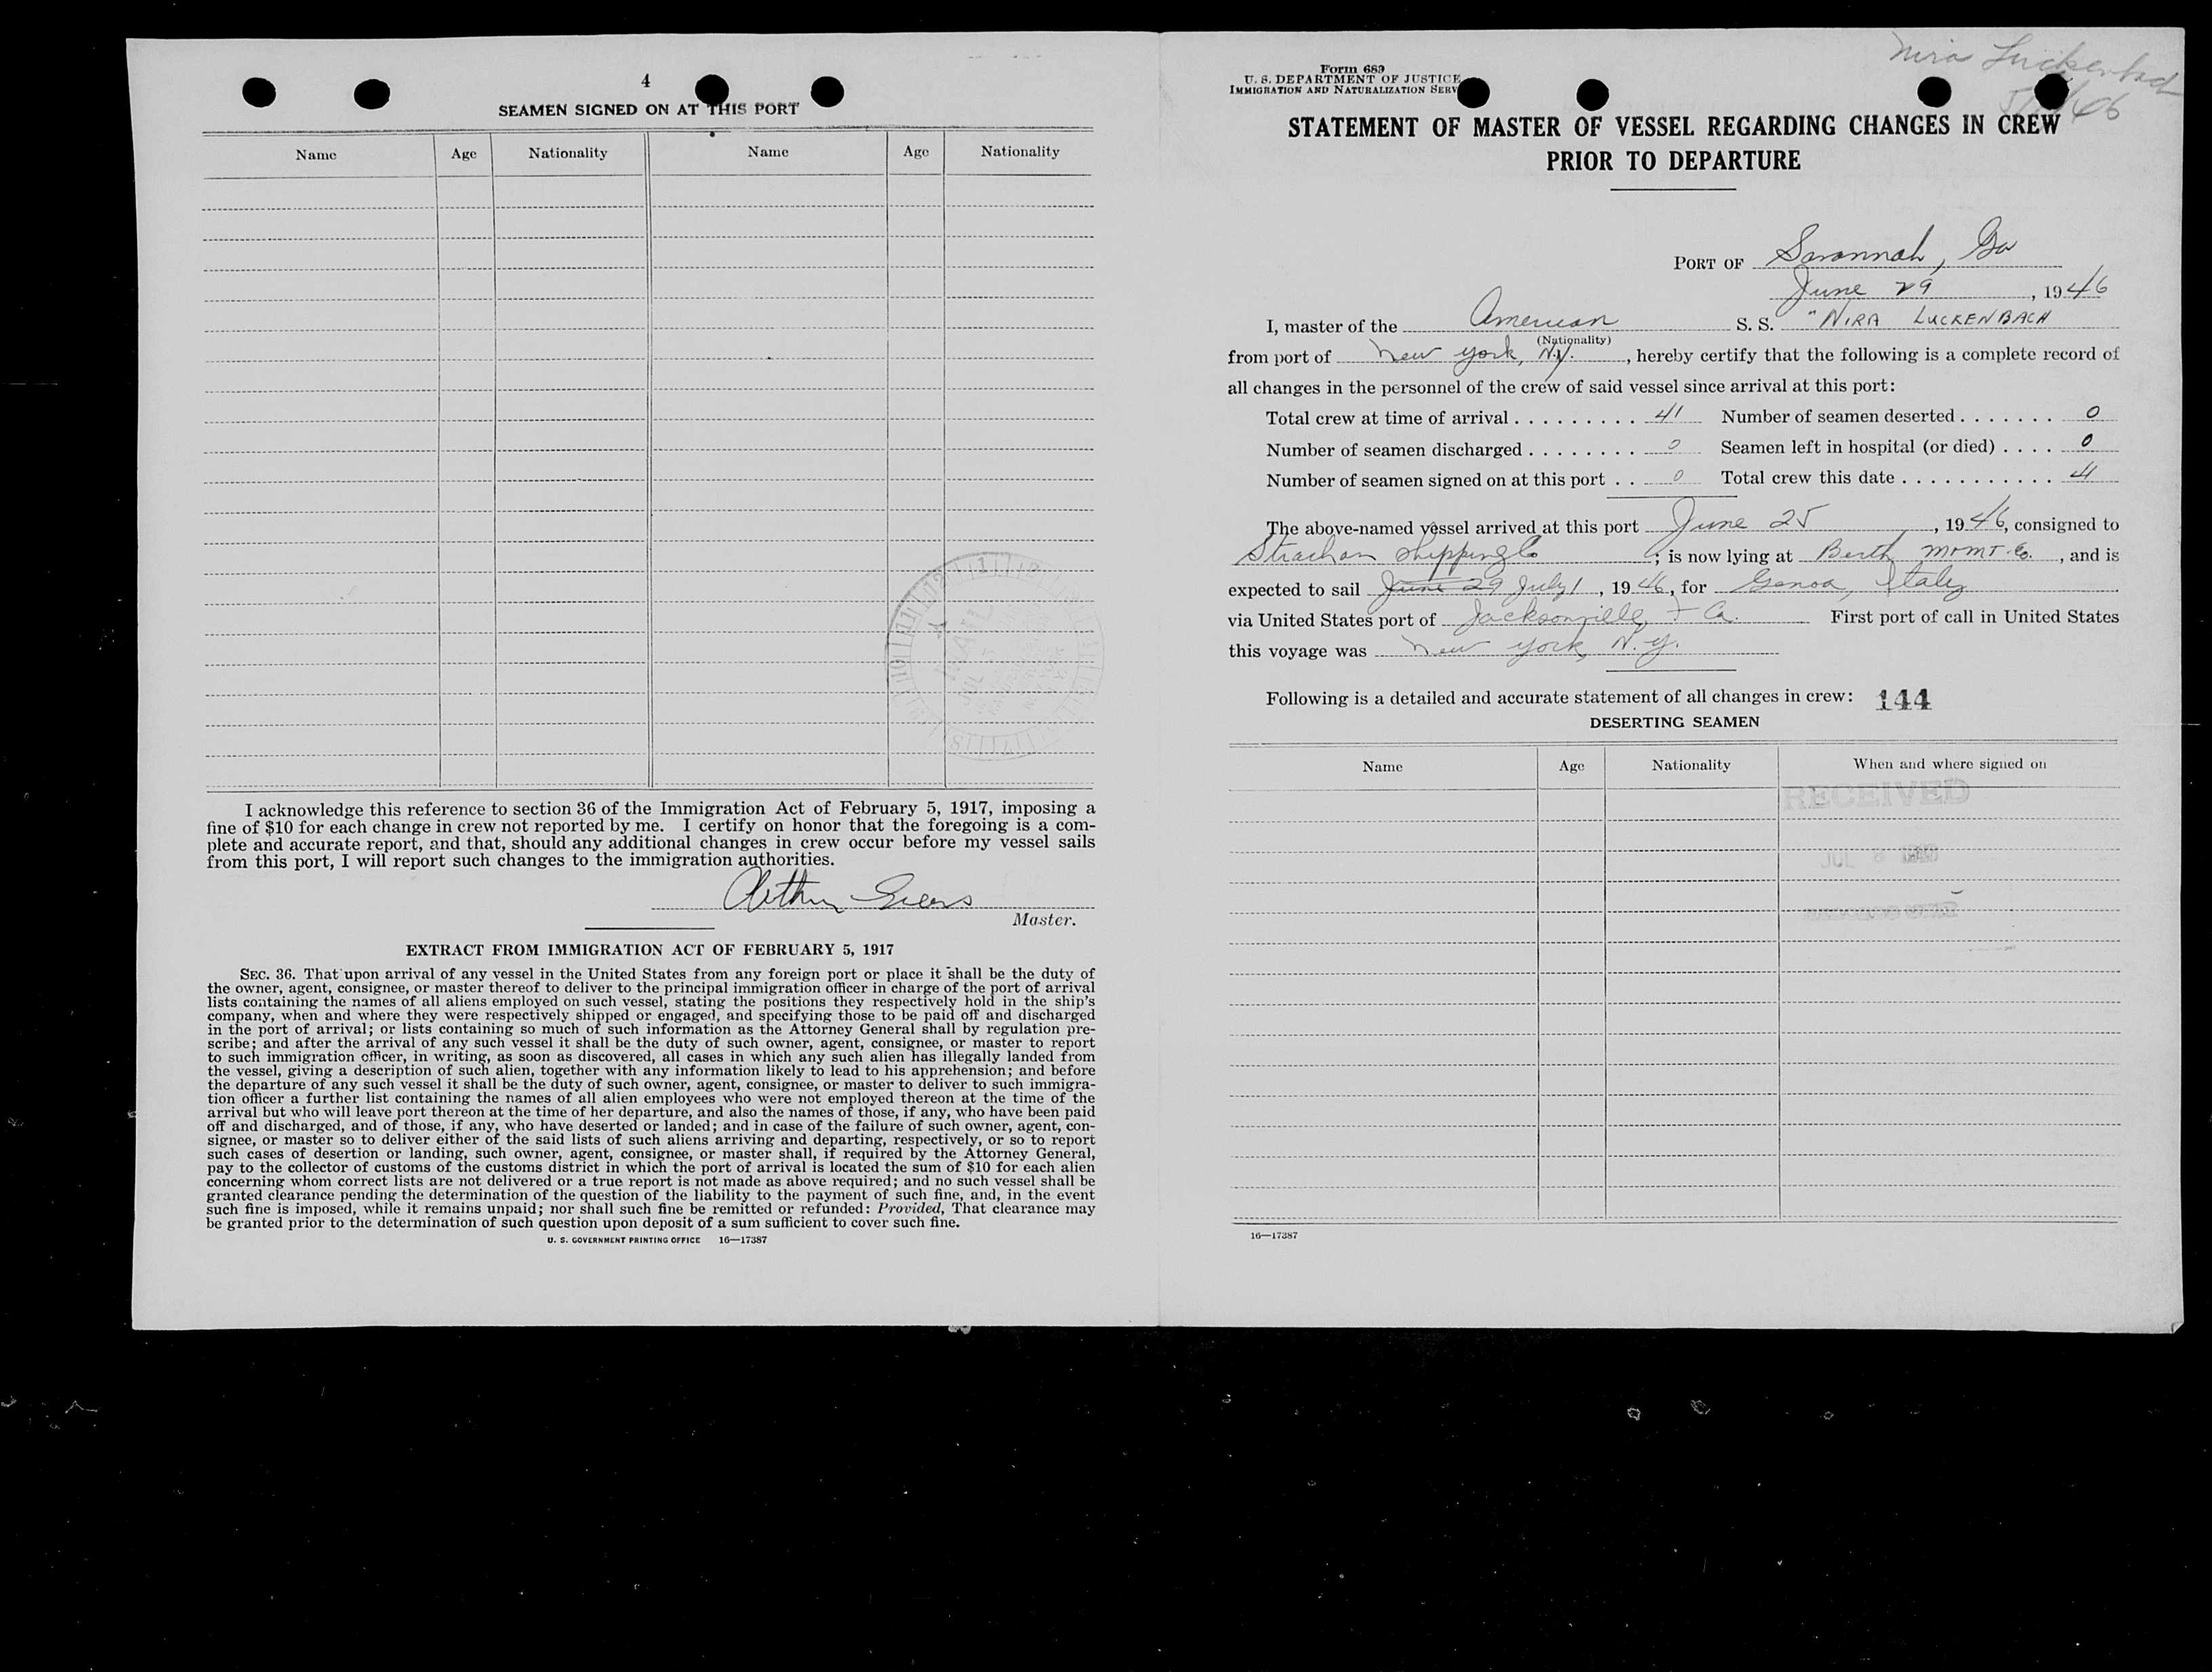 4
SEAMEN SIGNED ON AT THIS PORT
Name Age Nationality Name Age Nationality
I acknowledge this reference to section 36 of the Immigration Act of February 5, 1917, imposing a
fine of $10 for each change in crew not reported by me. I certify on honor that the foregoing is a com-
plete and accurate report, and that, should any additional changes in crew occur before my vessel sails
from this port, I will report such changes to the immigration authorities.
Arthur
Master.
EXTRACT FROM IMMIGRATION ACT OF FEBRUARY 5, 1917
SEC. 36. That upon arrival of any vessel in the United States from any foreign port or place it shall be the duty of
the owner, agent, consignee, or master thereof to deliver to the principal immigration officer in charge of the port of arrival
lists containing the names of all aliens employed on such vessel, stating the positions they respectively hold in the ship's
company, when and where they were respectively shipped or engaged, and specifying those to be paid off and discharged
in the port of arrival; or lists containing so much of such information as the Attorney General shall by regulation pre-
scribe; and after the arrival of any such vessel it shall be the duty of such owner, agent, consignee, or master to report
to such immigration officer, in writing, as soon as discovered, all cases in which any such alien has illegally landed from
the vessel, giving a description of such alien, together with any information likely to lead to his apprehension; and before
the departure of any such vessel it shall be the duty of such owner, agent, consignee, or master to deliver to such immigra-
tion officer a further list containing the names of all alien employees who were not employed thereon at the time of the
arrival but who will leave port thereon at the time of her departure, and also the names of those, if any, who have been paid
off and discharged, and of those, if any, who have deserted or landed; and in case of the failure of such owner, agent, con-
signee, or master so to deliver either of the said lists of such aliens arriving and departing, respectively, or so to report
such cases of desertion or landing, such owner, agent, consignee, or master shall, if required by the Attorney General,
pay to the collector of customs of the customs district in which the port of arrival is located the sum of $10 for each alien
concerning whom correct lists are not delivered or a true report is not made as above required; and no such vessel shall be
granted clearance pending the determination of the question of the liability to the payment of such fine, and, in the event
such fine is imposed, while it remains unpaid; nor shall such fine be remitted or refunded: Provided, That clearance may
be granted prior to the determination of such question upon deposit of a sum sufficient to cover such fine.
U. S. GOVERNMENT PRINTING OFFICE 16—17387
Nira Luckenbach
Form 689
U. S. DEPARTMENT OF JUSTICE
IMMIGRATION AND NATURALIZATION SERV
STATEMENT OF MASTER OF VESSEL REGARDING CHANGES IN CREW
PRIOR TO DEPARTURE
PORT OF Savannah, Ga
June 29, 1946
I, master of the American S. S. "NIRA LUCKENBACH
(Nationality)
from port of New York, N.Y., hereby certify that the following is a complete record of
all changes in the personnel of the crew of said vessel since arrival at this port:
Total crew at time of arrival . . . . . . . . . 41 Number of seamen deserted . . . . . . . 0
Number of seamen discharged . . . . . . . . 0 Seamen left in hospital (or died) . . . . 0
Number of seamen signed on at this port . . 0 Total crew this date . . . . . . . . . . . 41
The above-named vessel arrived at this port June 25, 1946, consigned to
Strachan Shipping Co; is now lying at Berth M+MT. Co., and is
expected to sail June 29 July 1, 1946, for Genoa, Italy
via United States port of Jacksonville, First port of call in United States
this voyage was New York, N.Y.
Following is a detailed and accurate statement of all changes in crew: 144
DESERTING SEAMEN
Name Age Nationality When and where signed on
RECEIVED
JUL
16—17387